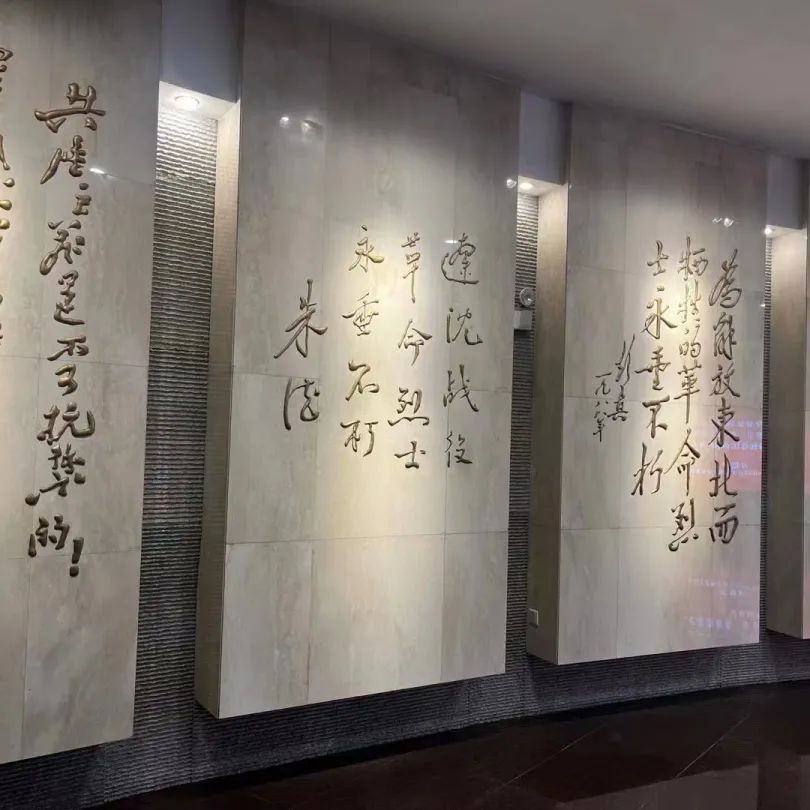 共產主義是不可抗禦的!
遼沈战役
革命烈士
永垂不朽
朱德
為解放東北而
牺牲的革命烈
士永垂不朽
彭真